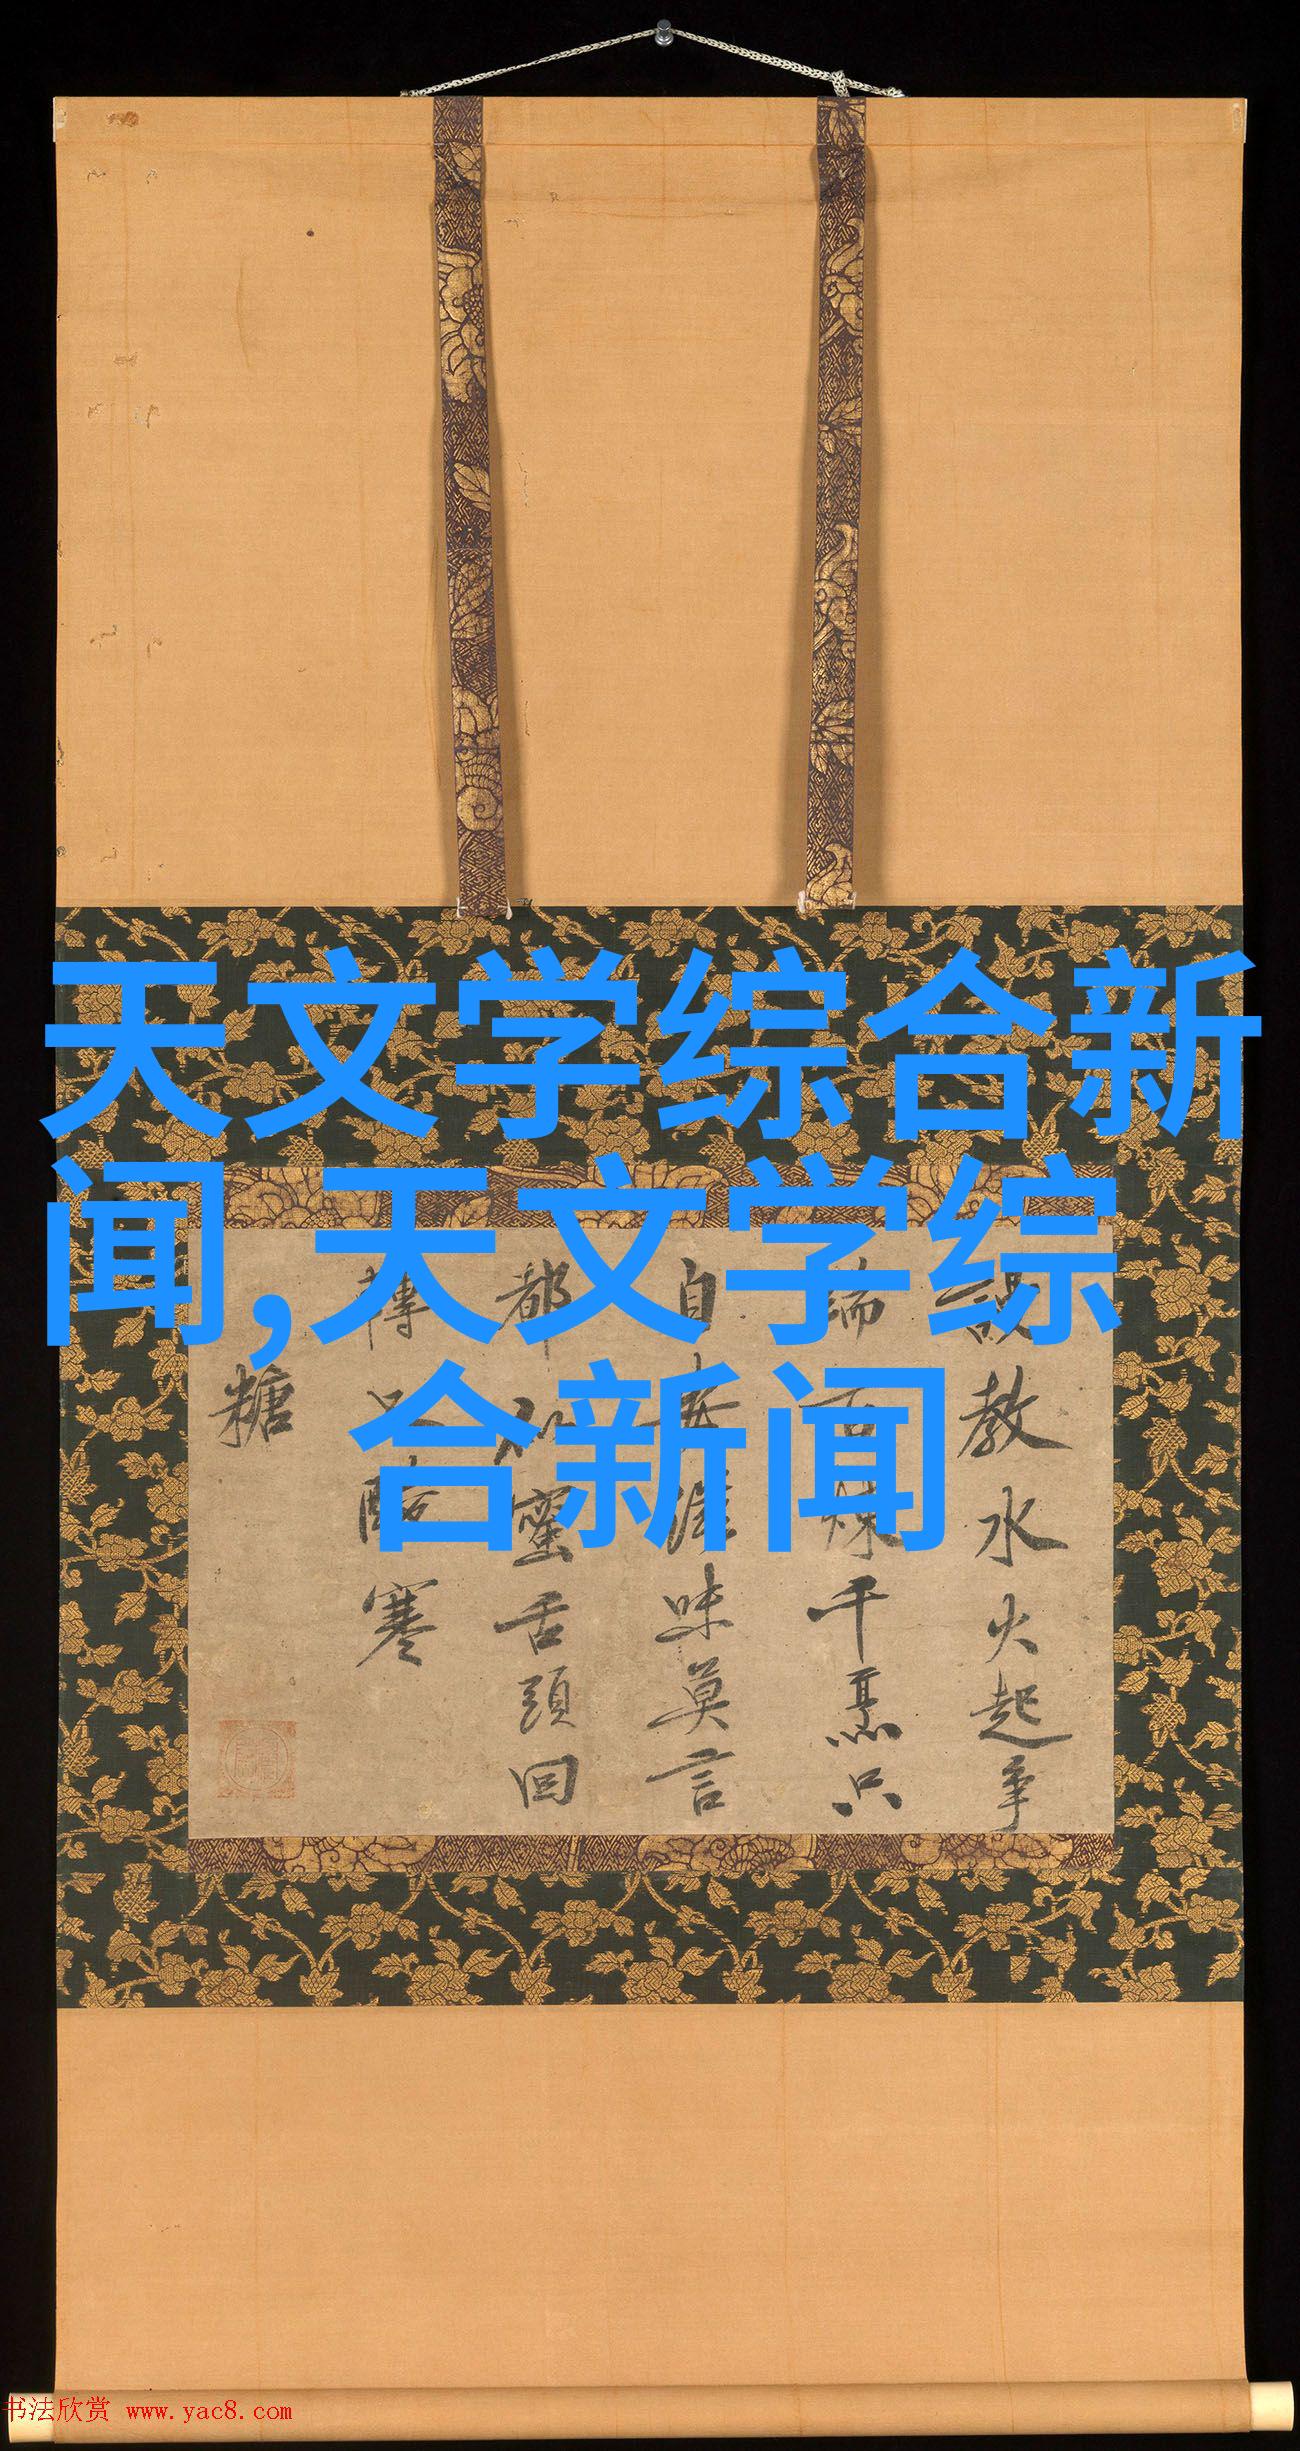 天文学综合新
闻,天文学综
合新闻
教水火起争
千烹只
味莫言
蜜舌頭回
寒
糖
书法欣赏 www.yac8.com